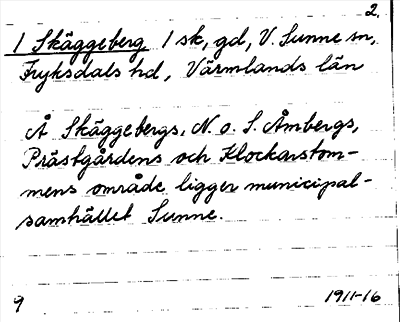 2.
1 Skäggeberg 1 sk, gd, V. Sunne sn,
Fryksdals hd, Värmlands län
Å Skäggebergs, N. o. S. Åmbergs,
Prästgårdens och Klockarstom-
mens område ligger municipal-
samhället Sunne.
9 1911-16